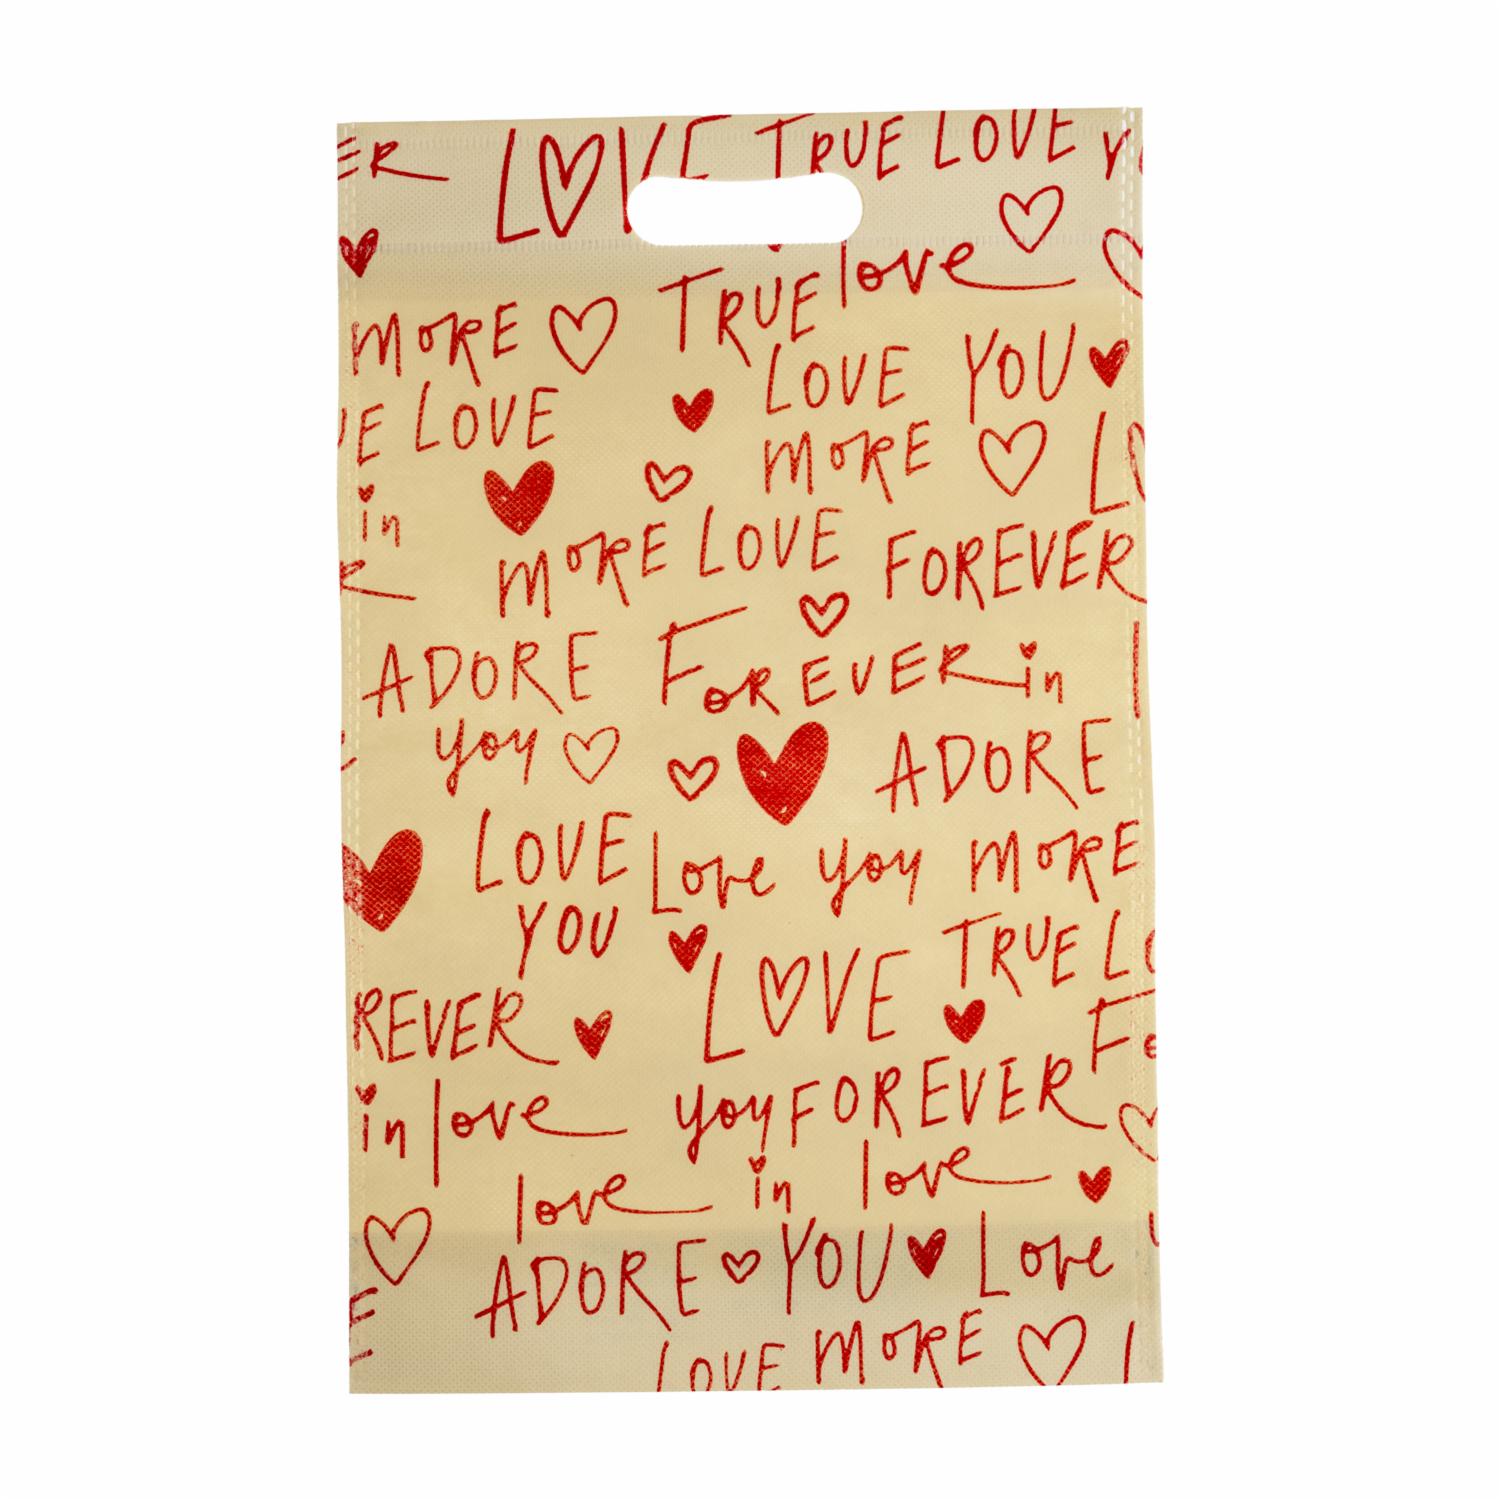 ER LOVE TRUE LOVE
TRUE love
MORE
LOVE YOU
LOVE
MORE
in
MORE LOVE FOREVER
ADORE FOREVER in
you
ADORE
LOVE Love you MORE
YOU
LOVE TRUE
REVER
in love you FOREVER
love in love
ADORE YOU Love
LOVE MORE